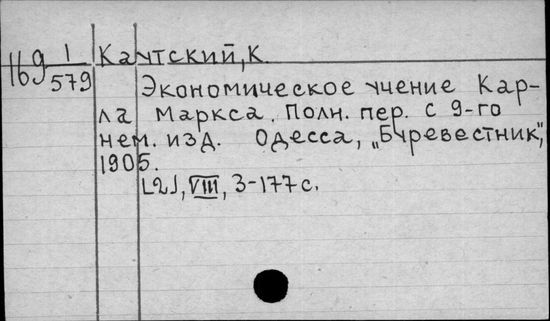 169 1/579 Каутский, К.
Экономическое учение Кар-
ла Маркса. Полн. пер. с 9-го
нем. изд. Одесса, „Буревестник",
1905.
[2], VIII, 3-177 с.